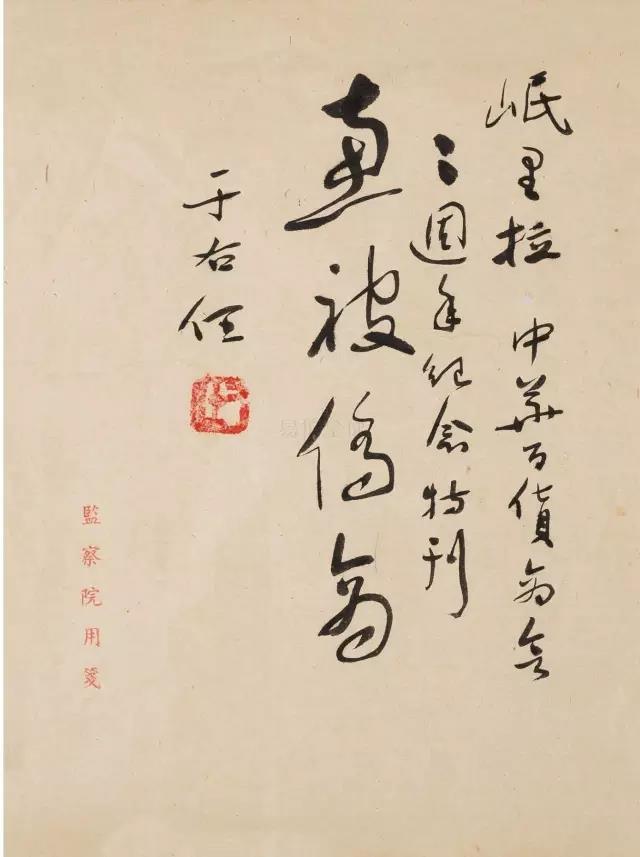 岷里拉 中華百貨商會
二週年紀念特刊
惠被僑商
于右任
監察院用箋